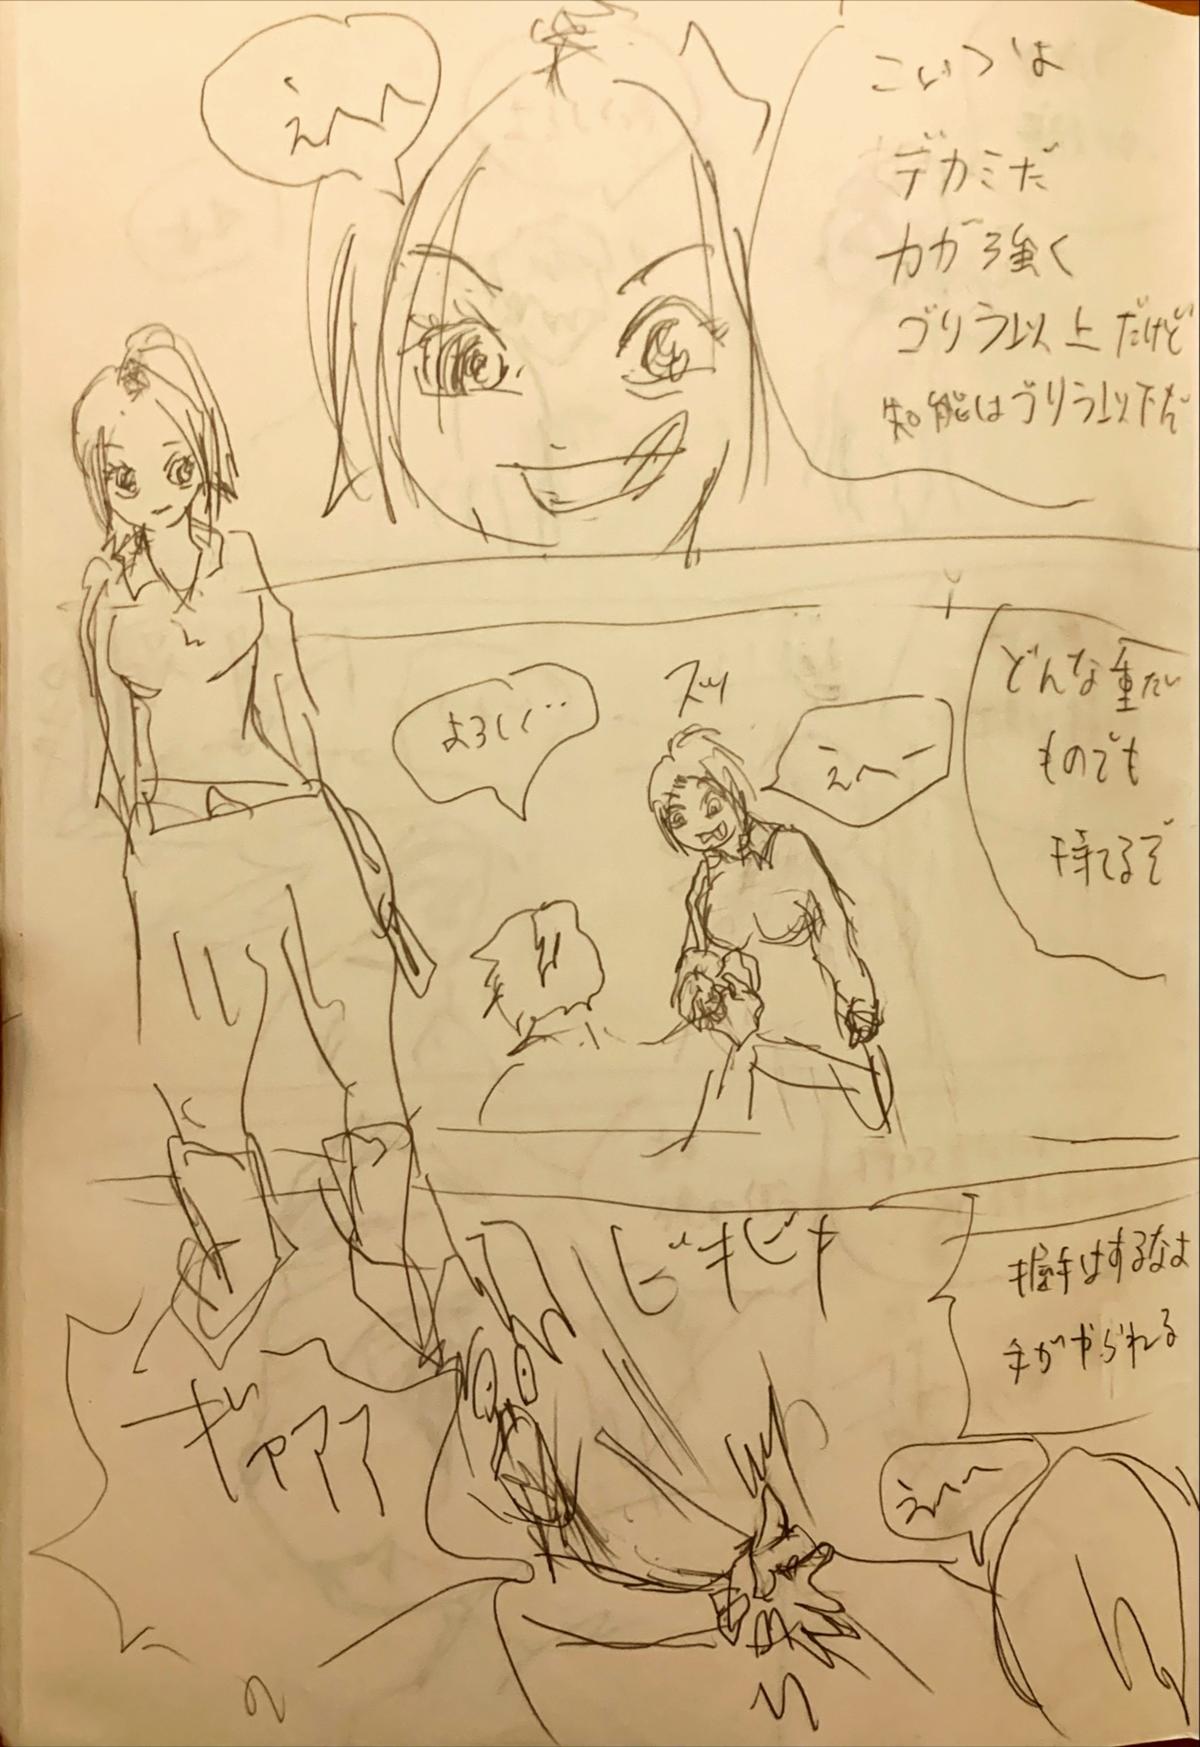 こいつは
デカミだ
力が強く
ゴリラ以上だけど
知能はゴリラ以下だ
えへへ
どんな重たい
ものでも
持てるぞ
えへー
ズッ
よろしく‥
握手はするなよ
手がやられる
ビキビキ
えへへ
ギィァアア